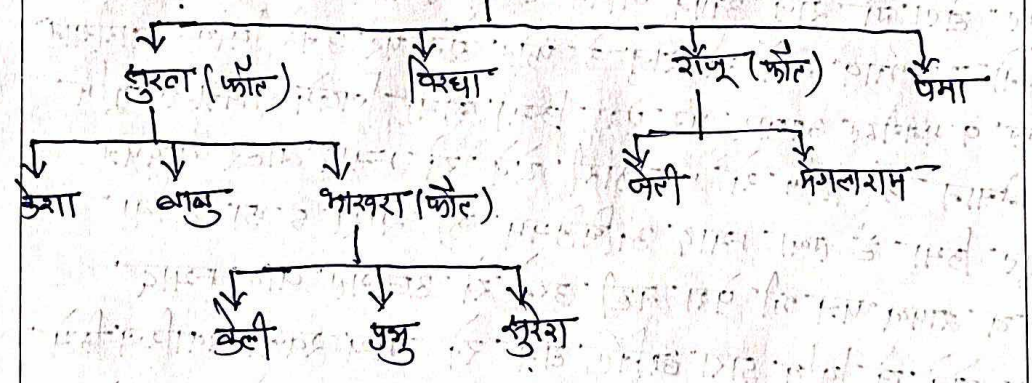 सुरता (फौत) विरधा राजू (फौत) पेमा
केशा बाबु भाखरा (फौत) जेती मंगलाराम
केली प्रभु सुरेश